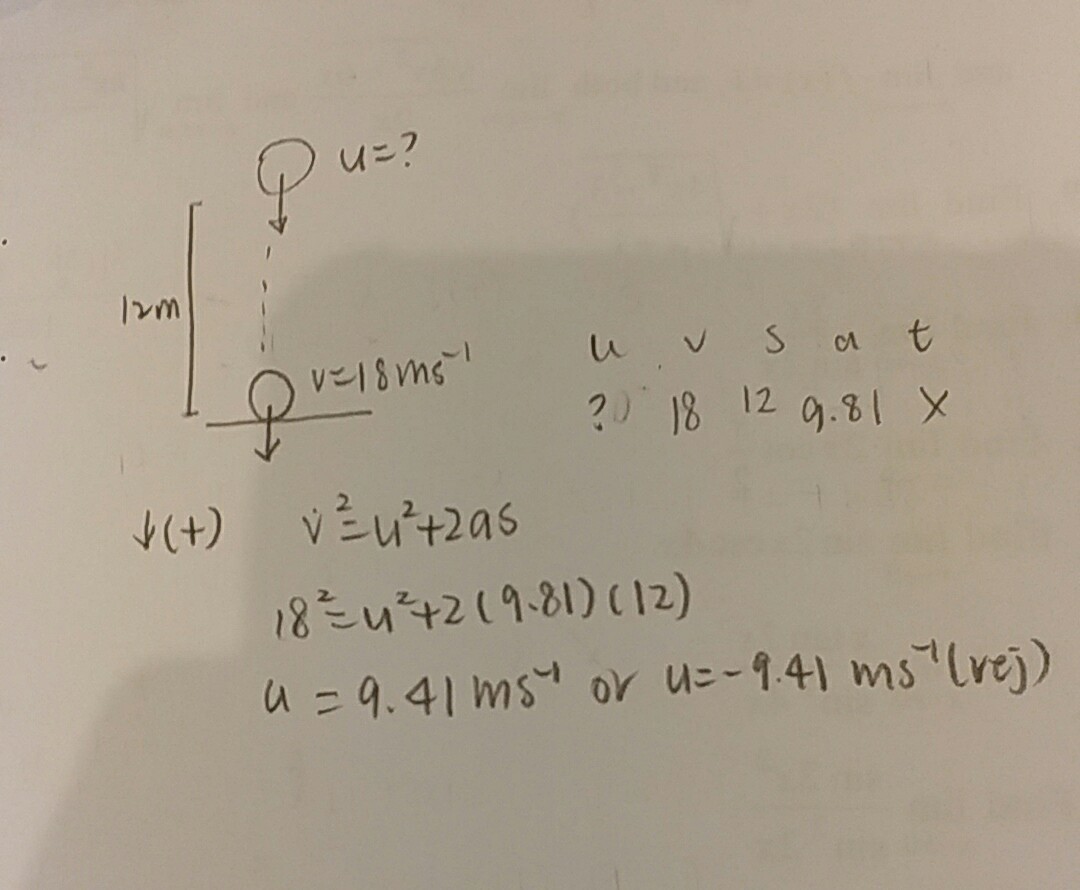 u=?
12m
v=18ms⁻¹
u v s a t
? 18 12 9.81 X
↓(+) v²=u²+2as
18²=u²+2(9.81)(12)
u = 9.41 ms⁻¹ or u=-9.41 ms⁻¹ (rej)